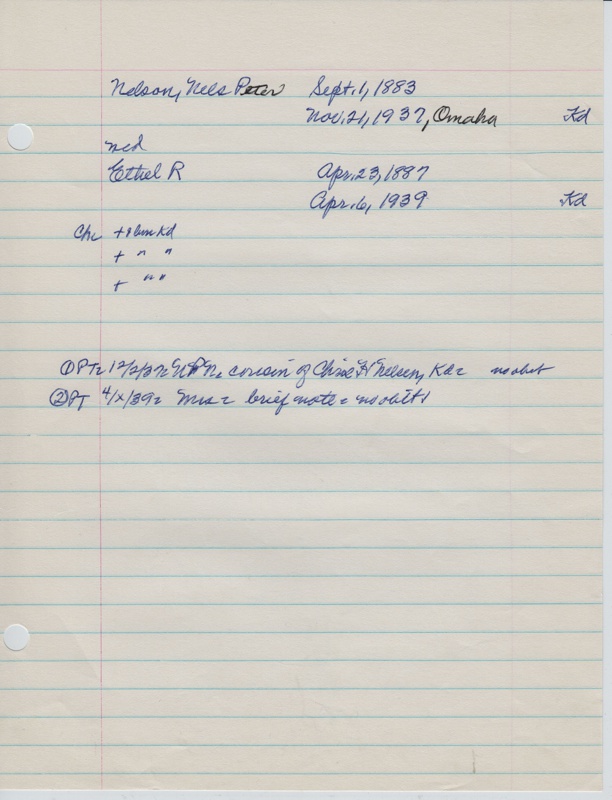 Nelson, Nels Peter Sept. 1, 1883
Nov. 21, 1937, Omaha Kd
md
Ethel R Apr. 23, 1887
Apr. 6, 1939 Kd
Chr ++ bm Kd
+ " "
+ " "
① PT= 12/2/37= N P N, cousin of Chris H Nelson, Kd= no obit
② PT 4/x/39= Mrs= brief note= no obit